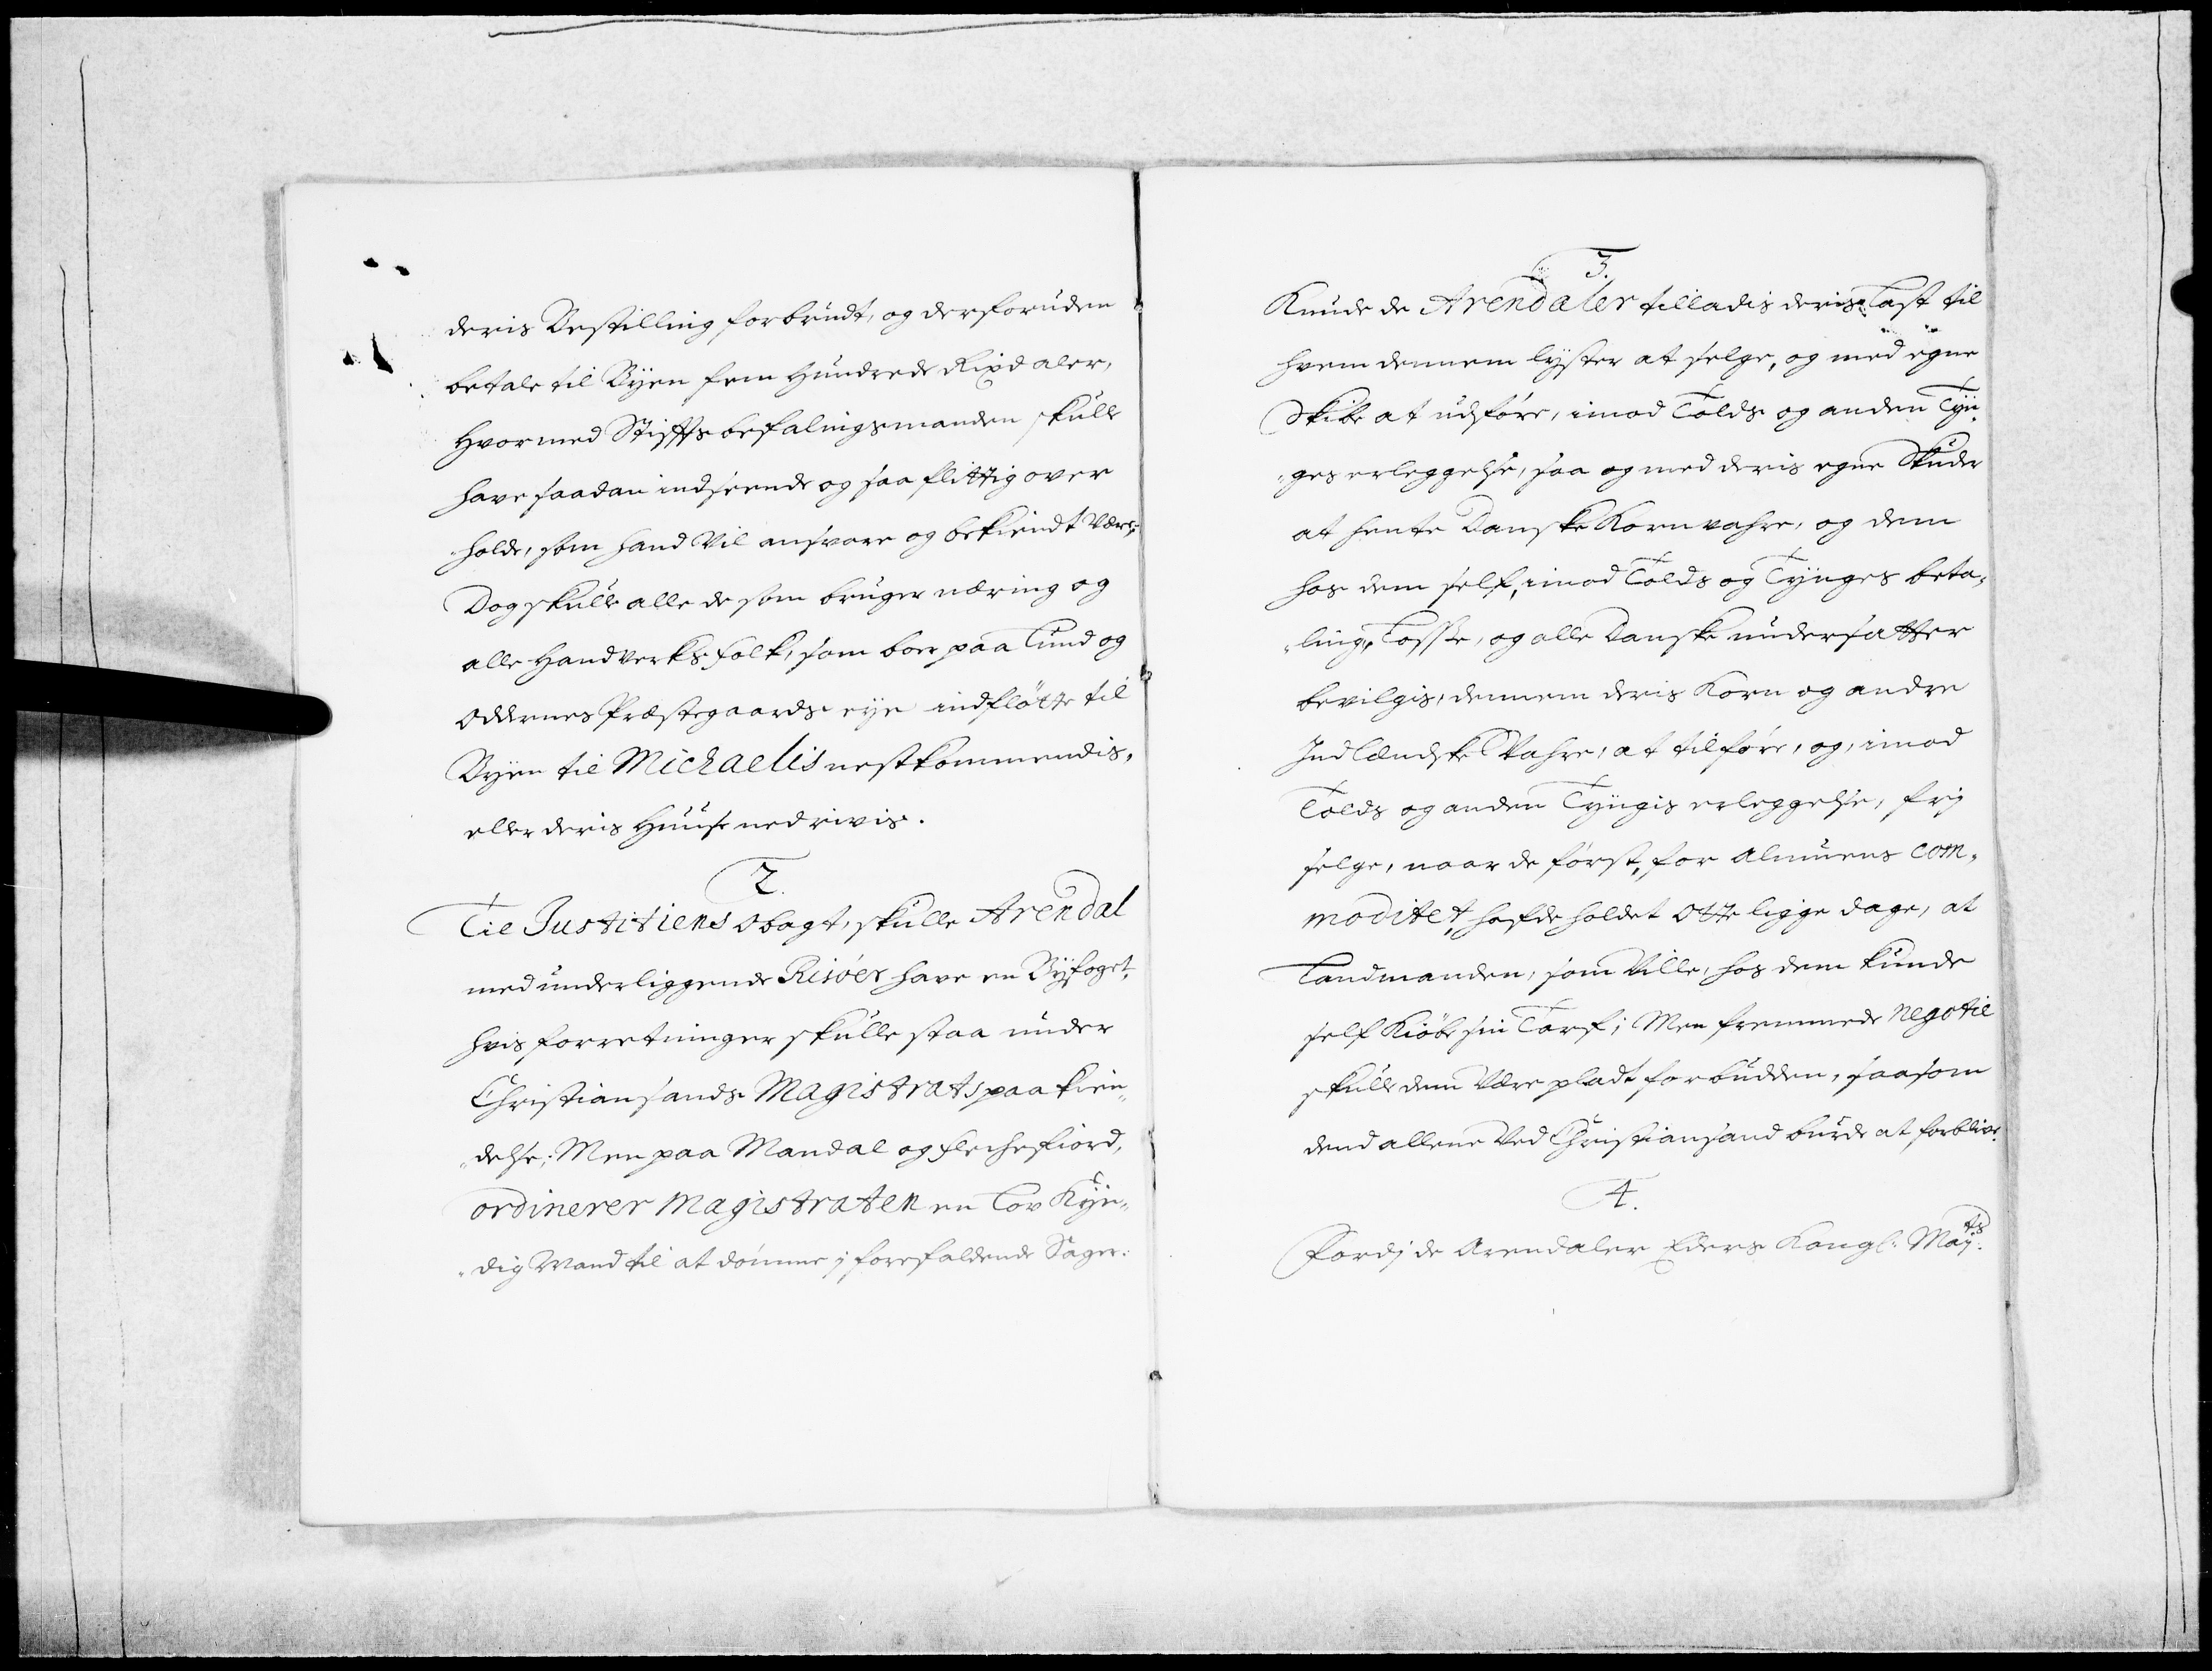 deris Bestilling forbrudt, og derforuden
betale til Byen fem Hundrede Rixdaler,
Hvormed Stiftsbefalingsmanden skulle
have saadan indseende og saa flittig over
holde, som hand Vil ansvare og bekiendt Være,
Dog skulle alle de som bruger næring og
alle Handverksfolk, som boer paa Lund og
Oddernes Præstegaards eye indflötte til
Byen til Michaelis nestkommendis,
eller deris Huuse nedrivis.
2.
Til Justitiens Obagt, skulle Arendal
med underliggende Risöer have en Byfoget,
hvis forretninger skulle staa under
Christiansands Magistrats paa kien„
„delse; Men paa Mandal og flechefiord,
ordinerer Magistraten en Lov Kyn„
„dig Mand til at dömme j forefaldende Sager.
3.
Kunde de Arendaler tilladis deris Last til
hvem dennem lyster at selge, og med egne
Skibe at udföre, imod Tolds og anden Tyn„
„ges erleggelse, saa og med deris egne Skuder
at hente Danske Kornvahre, og dem
hos dem self, imod Tolds og Tynges beta„
„ling, Losse, og alle Danske undersatter
bevilgis, dennem deris Korn og andre
Indlændske Vahre, at tilföre, og, imod
Tolds og anden Tyngis erleggelse, frj
selge, naar de först, for Almuens com„
moditet, hafde holdet Otte ligge dage, at
Landmanden, som Ville, hos dem kunde
self Kiöbe sin Tarf; Men fremmede Negotie
skulle dem Være pladt forbudden, saasom
dend allene Ved Christiansand burde at forblive.
4.
Fordj de Arendaler Eders Kongl: Maij:ts